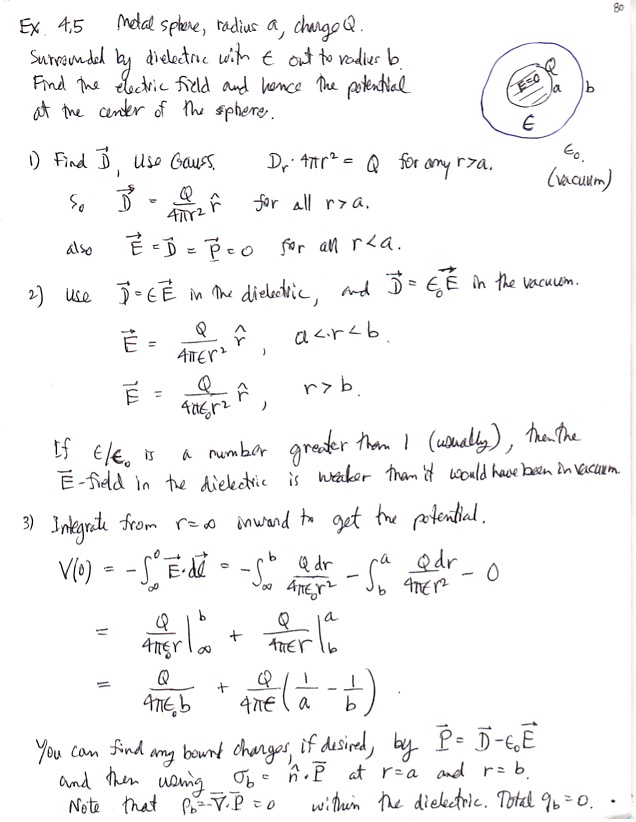 80
Ex 4.5 Metal sphere, radius a, charge Q.
Surrounded by dielectric with ϵ out to radius b.
Find the electric field and hence the potential
at the center of the sphere.
E=0 Q a b
ϵ
ϵ₀
(vacuum)
1) Find D⃗, Use Gauss. Dᵣ·4πr² = Q for any r>a.
So D⃗ = Q/4πr² r̂ for all r>a.
also E⃗ = D⃗ = P⃗ = 0 for all r<a.
2) Use D⃗=ϵE⃗ in the dielectric, and D⃗=ϵ₀E⃗ in the vacuum.
E⃗ = Q/4πϵr² r̂, a<r<b.
E⃗ = Q/4πϵ₀r² r̂, r>b.
If ϵ/ϵ₀ is a number greater than 1 (usually), then the
E⃗-field in the dielectric is weaker than it would have been in vacuum.
3) Integrate from r=∞ inward to get the potential.
V(0) = -∫_∞^0 E⃗·dl⃗ = -∫_∞^b Q dr/4πϵ₀r² - ∫_b^a Q dr/4πϵr² - 0
= Q/4πϵ₀r |_∞^b + Q/4πϵr |_b^a
= Q/4πϵ₀b + Q/4πϵ (1/a - 1/b).
You can find any bound charges, if desired, by P⃗ = D⃗-ϵ₀E⃗
and then using σ_b = n̂·P⃗ at r=a and r=b.
Note that ρ_b=-∇⃗·P⃗=0 within the dielectric. Total q_b=0.